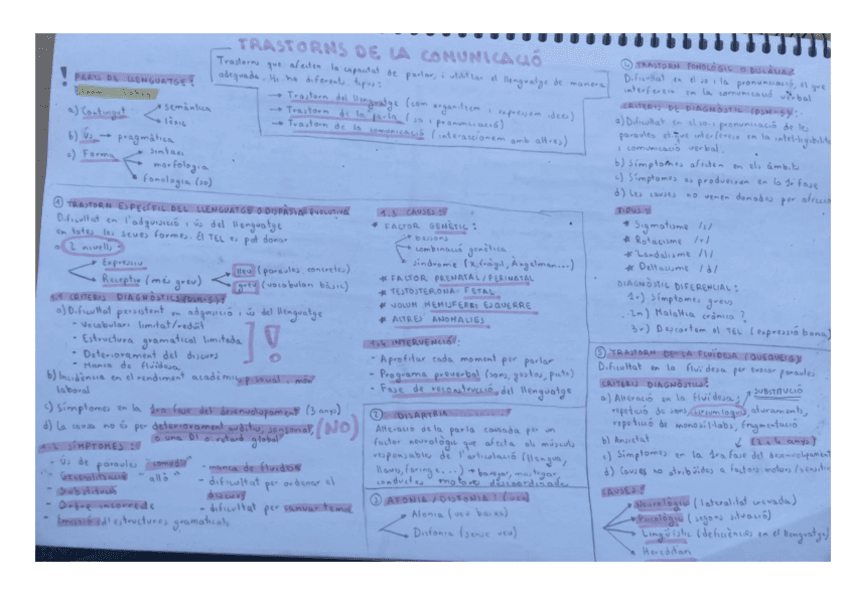 TRASTORNS DE LA COMUNICACIÓ
Trastorns que afecten la capacitat de parlar, i utilitzar el llenguatge de manera
adequada. Hi ha diferents tipus:
→ Trastorn del llenguatge (com organitzem i expressem idees)
→ Trastorn de la parla (so i pronunciació)
→ Trastorn de la comunicació (interaccionem amb altres)
! PARTS DE LLENGUATGE:
a) Contingut
Semàntica
lèxic
b) Ús → pragmàtica
c) Forma
sintaxi
morfologia
fonologia (so)
① TRASTORN ESPECÍFIC DEL LLENGUATGE O DISFÀSIA EVOLUTIVA
Dificultat en l'adquisició i ús del llenguatge
en totes les seves formes. El TEL es pot donar
a 2 nivells:
Expressiu
Receptiu (més greu)
lleu (paraules concretes)
greu (vocabulari bàsic)
1.1 CRITERIS DIAGNÒSTICS (DSM-5):
a) Dificultat persistent en adquisició i ús del llenguatge
- Vocabulari limitat/reduït
- Estructura gramatical limitada
- Deteriorament del discurs
- Manca de fluïdesa
!
b) Incidència en el rendiment acadèmic, món
laboral
c) Símptomes en la 1ra fase del desenvolupament (3 anys)
d) La causa no és per deteriorament auditiu, sensorial,
o una DI o retard global" (NO)
1.2 SÍMPTOMES:
- Ús de paraules "comodí"
- "allò"
- Substitució
- Ordre incorrecte
- Omissió d'estructures gramaticals
- manca de fluïdesa
- dificultat per ordenar el
discurs
- dificultat per canviar tema
1.3 CAUSES:
* FACTOR GENÈTIC:
bessons
combinació genètica
síndrome (X fràgil, Angelman...)
* FACTOR PRENATAL/PERINATAL
* TESTOSTERONA FETAL
* VOLUM HEMISFERI ESQUERRE
* ALTRES ANOMALIES
1.4 INTERVENCIÓ:
- Aprofitar cada moment per parlar
- Programa preverbal (sons, gestos, picto)
- Fase de reconstrucció del llenguatge
② DISARTRIA
Alteració de la parla causada per un
factor neurològic que afecta als músculs
responsables de l'articulació (llengua,
llavis, faringe, ...) → bavejar, mastegar,
conductes motores descoordinades
③ AFONIA/DISFONIA: (veu)
Afonia (veu baixa)
Disfonia (sense veu)
④ TRASTORN FONOLÒGIC O DISLÀLIA
Dificultat en el so i la pronunciació, el que
interfereix en la comunicació verbal
CRITERIS DE DIAGNÒSTIC (DSM-5):
a) Dificultat en el so i pronunciació de les
paraules el que interfereix en la intel·ligibilitat
i comunicació verbal.
b) Símptomes afecten en els àmbits
c) Símptomes es produeixen en la 1r fase
d) Les causes no venen donades per
TIPUS:
* Sigmatisme /s/
* Rotacisme /r/
* Lambdacisme /l/
* Deltacisme /d/
DIAGNÒSTIC DIFERENCIAL:
1r) Símptomes greus
2n) Malaltia crònica?
3r) Descartem el TEL (expressió bona)
⑤ TRASTORN DE LA FLUÏDESA (QUEQUEIG)
Dificultat en la fluïdesa per evocar paraules
CRITERIS DIAGNÒSTICS:
SUBSTITUCIÓ
a) Alteració en la fluïdesa:
repetició de sons, circumloqui, aturaments,
repetició de monosíl·labs, fragmentació
b) Ansietat
(2 a 4 anys)
c) Símptomes en la 1ra fase del desenvolupament
d) Causes no atribuïdes a factors motors/sensorials
CAUSES:
Neurològic (lateralitat creuada)
Psicològic (segons situació)
Lingüístic (deficiències en el llenguatge)
Hereditari